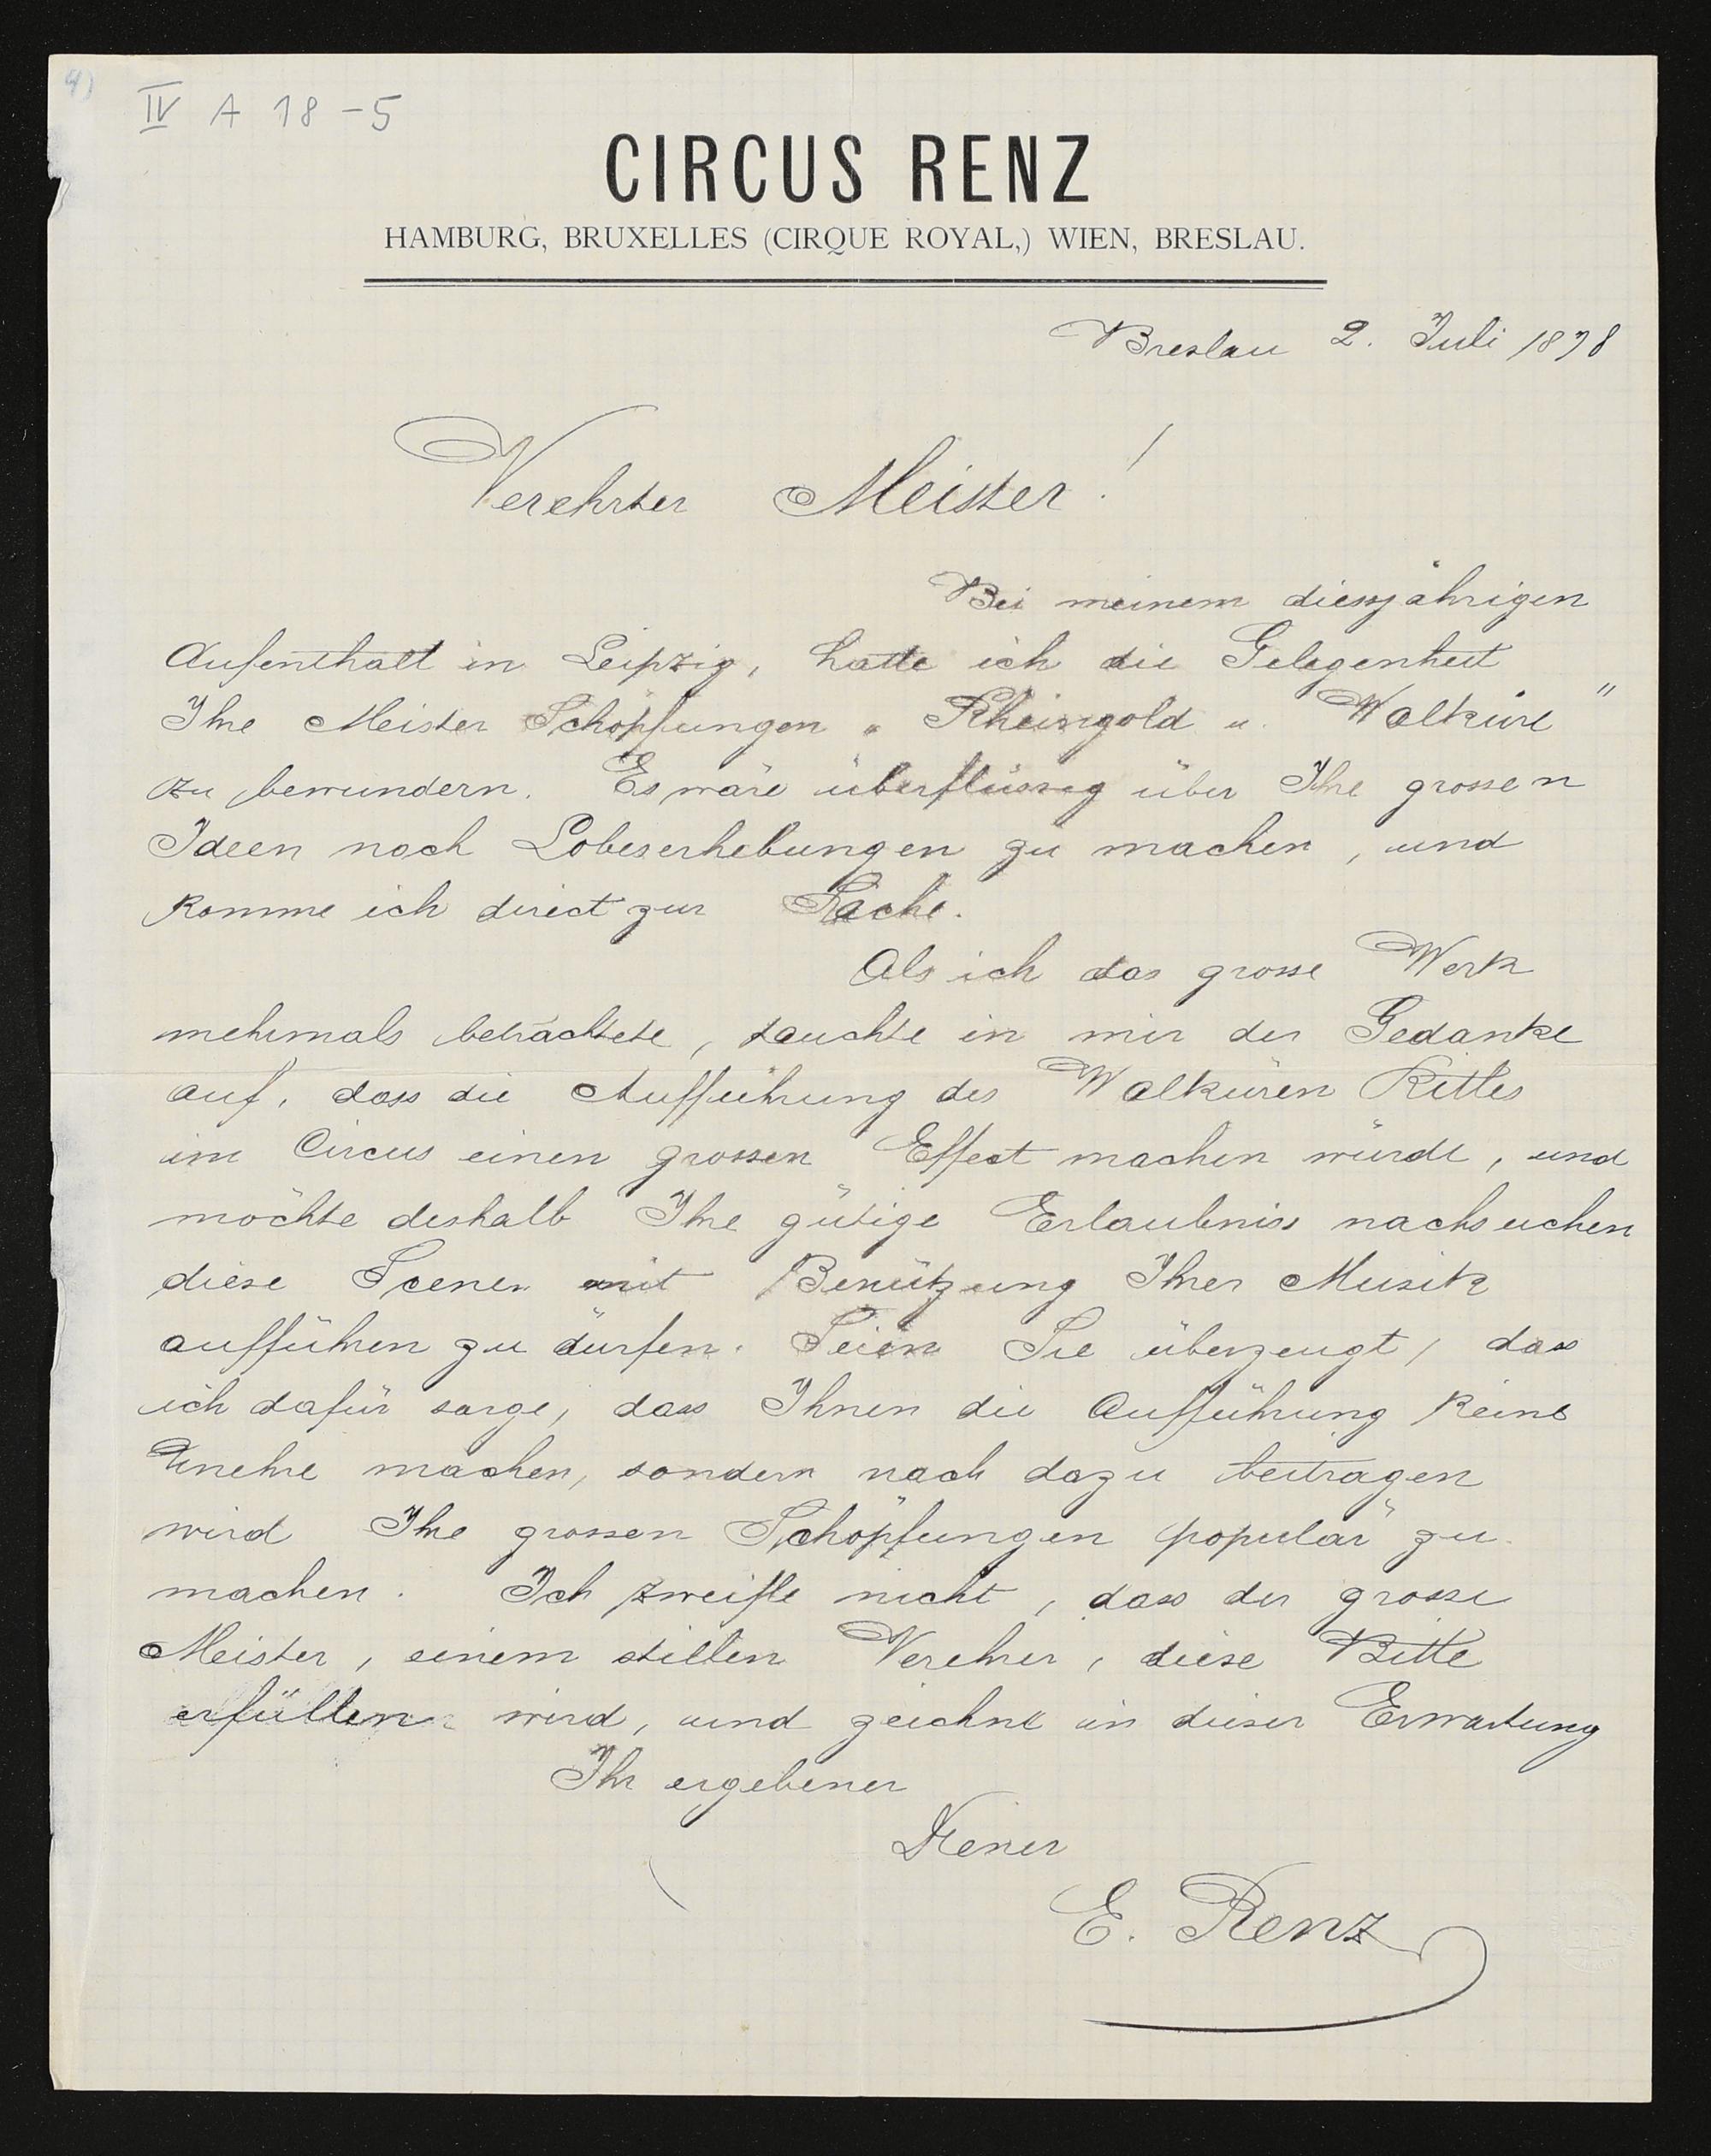 4)
IV A 18-5
CIRCUS RENZ
HAMBURG, BRUXELLES (CIRQUE ROYAL,) WIEN, BRESLAU.
Breslau 2. Juli 1878
Verehrter Meister!
Bei meinem diessjährigen
Aufenthalt in Leipzig, hatte ich die Gelegenheit
Ihre Meister Schöpfungen „Rheingold u. Walküre"
zu bewundern. Es wäre überflüssig über Ihre grossen
Ideen noch Lobeserhebungen zu machen, und
komme ich direct zur Sache.
Als ich das grosse Werk
mehrmals betrachtete, tauchte in mir der Gedanke
auf, dass die Aufführung des Walküren Rittes
im Circus einen grossen Effect machen würde, und
möchte deshalb Ihre gütige Erlaubniss nachsuchen
diese Scenen mit Benützung Ihrer Musik
aufführen zu dürfen. Seien Sie überzeugt, dass
ich dafür sorge, dass Ihnen die Aufführung keine
Unehre machen, sondern noch dazu beitragen
wird Ihre grossen Schöpfungen populär zu
machen. Ich zweifle nicht, dass der grosse
Meister, einem stillen Verehrer, diese Bitte
erfüllen wird, und zeichne in dieser Erwartung
Ihr ergebener
Diener
E. Renz